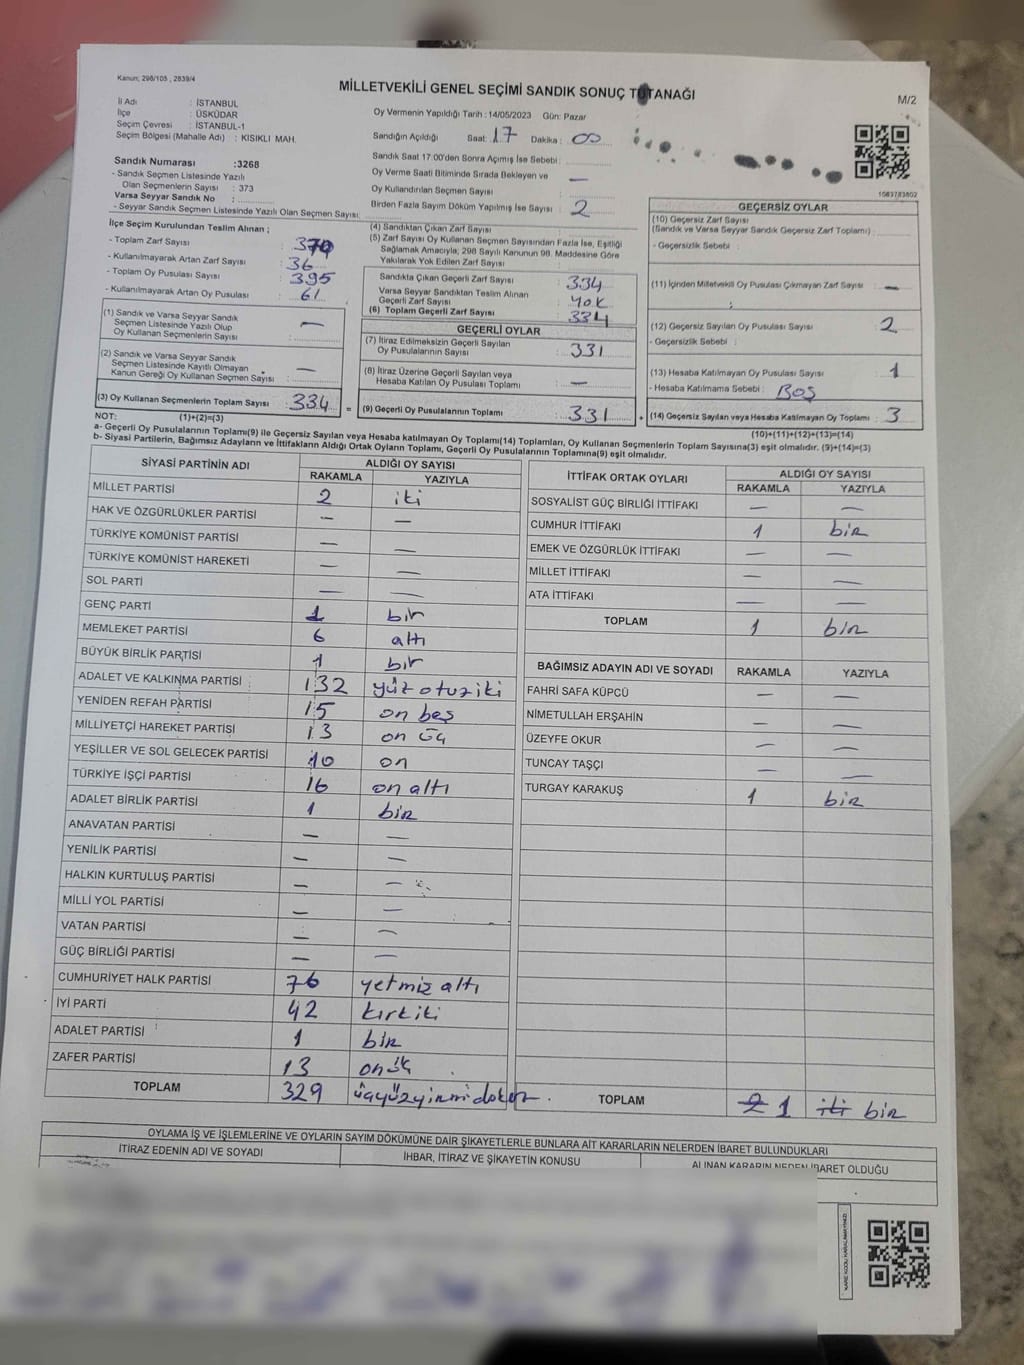 Kanun; 298/105 ; 2839/4
MİLLETVEKİLİ GENEL SEÇİMİ SANDIK SONUÇ TUTANAĞI
M/2
İl Adı : İSTANBUL
İlçe : ÜSKÜDAR
Seçim Çevresi : İSTANBUL-1
Seçim Bölgesi (Mahalle Adı) : KISIKLI MAH.
Oy Vermenin Yapıldığı Tarih : 14/05/2023 Gün: Pazar
Sandığın Açıldığı Saat: 17 Dakika : 00
Sandık Saat 17:00'den Sonra Açımış İse Sebebi:
Oy Verme Saati Bitiminde Sırada Bekleyen ve —
Oy Kullandırılan Seçmen Sayısı
Birden Fazla Sayım Döküm Yapılmış İse Sayısı 2
Sandık Numarası :3268
- Sandık Seçmen Listesinde Yazılı
Olan Seçmenlerin Sayısı : 373
Varsa Seyyar Sandık No :
- Seyyar Sandık Seçmen Listesinde Yazılı Olan Seçmen Sayısı:
İlçe Seçim Kurulundan Teslim Alınan ;
- Toplam Zarf Sayısı : 370
- Kullanılmayarak Artan Zarf Sayısı : 36
- Toplam Oy Pusulası Sayısı : 395
- Kullanılmayarak Artan Oy Pusulası : 61
(1) Sandık ve Varsa Seyyar Sandık
Seçmen Listesinde Yazılı Olup
Oy Kullanan Seçmenlerin Sayısı : —
(2) Sandık ve Varsa Seyyar Sandık
Seçmen Listesinde Kayıtlı Olmayan
Kanun Gereği Oy Kullanan Seçmen Sayısı : —
(3) Oy Kullanan Seçmenlerin Toplam Sayısı : 334
NOT: (1)+(2)=(3)
(4) Sandıktan Çıkan Zarf Sayısı :
(5) Zarf Sayısı Oy Kullanan Seçmen Sayısından Fazla İse, Eşitliği
Sağlamak Amacıyla; 298 Sayılı Kanunun 98. Maddesine Göre
Yakılarak Yok Edilen Zarf Sayısı :
Sandıkta Çıkan Geçerli Zarf Sayısı : 334
Varsa Seyyar Sandıktan Teslim Alınan
Geçerli Zarf Sayısı : yok
(6) Toplam Geçerli Zarf Sayısı : 334
GEÇERLİ OYLAR
(7) İtiraz Edilmeksizin Geçerli Sayılan
Oy Pusulalarının Sayısı : 331
(8) İtiraz Üzerine Geçerli Sayılan veya
Hesaba Katılan Oy Pusulası Toplamı : —
= (9) Geçerli Oy Pusulalarının Toplamı : 331 +
1063783802
GEÇERSİZ OYLAR
(10) Geçersiz Zarf Sayısı
(Sandık ve Varsa Seyyar Sandık Geçersiz Zarf Toplamı) :
- Geçersizlik Sebebi :
(11) İçinden Milletvekili Oy Pusulası Çıkmayan Zarf Sayısı : —
(12) Geçersiz Sayılan Oy Pusulası Sayısı : 2
- Geçersizlik Sebebi :
(13) Hesaba Katılmayan Oy Pusulası Sayısı : 1
- Hesaba Katılmama Sebebi : BOŞ
(14) Geçersiz Sayılan veya Hesaba Katılmayan Oy Toplamı : 3
(10)+(11)+(12)+(13)=(14)
a- Geçerli Oy Pusulalarının Toplamı(9) ile Geçersiz Sayılan veya Hesaba katılmayan Oy Toplamı(14) Toplamları, Oy Kullanan Seçmenlerin Toplam Sayısına(3) eşit olmalıdır. (9)+(14)=(3)
b- Siyasi Partilerin, Bağımsız Adayların ve İttifakların Aldığı Ortak Oyların Toplamı, Geçerli Oy Pusulalarının Toplamına(9) eşit olmalıdır.
SİYASİ PARTİNİN ADI ALDIĞI OY SAYISI
RAKAMLA YAZIYLA
MİLLET PARTİSİ 2 iki
HAK VE ÖZGÜRLÜKLER PARTİSİ — —
TÜRKİYE KOMÜNİST PARTİSİ — —
TÜRKİYE KOMÜNİST HAREKETİ — —
SOL PARTİ — —
GENÇ PARTİ 1 bir
MEMLEKET PARTİSİ 6 altı
BÜYÜK BİRLİK PARTİSİ 1 bir
ADALET VE KALKINMA PARTİSİ 132 yüz otuz iki
YENİDEN REFAH PARTİSİ 15 on beş
MİLLİYETÇİ HAREKET PARTİSİ 13 on üç
YEŞİLLER VE SOL GELECEK PARTİSİ 10 on
TÜRKİYE İŞÇİ PARTİSİ 16 on altı
ADALET BİRLİK PARTİSİ 1 bir
ANAVATAN PARTİSİ — —
YENİLİK PARTİSİ — —
HALKIN KURTULUŞ PARTİSİ — —
MİLLİ YOL PARTİSİ — —
VATAN PARTİSİ — —
GÜÇ BİRLİĞİ PARTİSİ — —
CUMHURİYET HALK PARTİSİ 76 yetmiz altı
İYİ PARTİ 42 kırk iki
ADALET PARTİSİ 1 bir
ZAFER PARTİSİ 13 on üç
TOPLAM 329 üçyüzyirmi dokuz
İTTİFAK ORTAK OYLARI ALDIĞI OY SAYISI
RAKAMLA YAZIYLA
SOSYALİST GÜÇ BİRLİĞİ İTTİFAKI — —
CUMHUR İTTİFAKI 1 bir
EMEK VE ÖZGÜRLÜK İTTİFAKI — —
MİLLET İTTİFAKI — —
ATA İTTİFAKI — —
TOPLAM 1 bir
BAĞIMSIZ ADAYIN ADI VE SOYADI RAKAMLA YAZIYLA
FAHRİ SAFA KÜPCÜ — —
NİMETULLAH ERŞAHİN — —
ÜZEYFE OKUR — —
TUNCAY TAŞÇI — —
TURGAY KARAKUŞ 1 bir
TOPLAM 2 1 iki bir
OYLAMA İŞ VE İŞLEMLERİNE VE OYLARIN SAYIM DÖKÜMÜNE DAİR ŞİKAYETLERLE BUNLARA AİT KARARLARIN NELERDEN İBARET BULUNDUKLARI
İTİRAZ EDENİN ADI VE SOYADI İHBAR, İTİRAZ VE ŞİKAYETİN KONUSU ALINAN KARARIN NEDEN İBARET OLDUĞU
KARE KODU KARALAMAYINIZ!